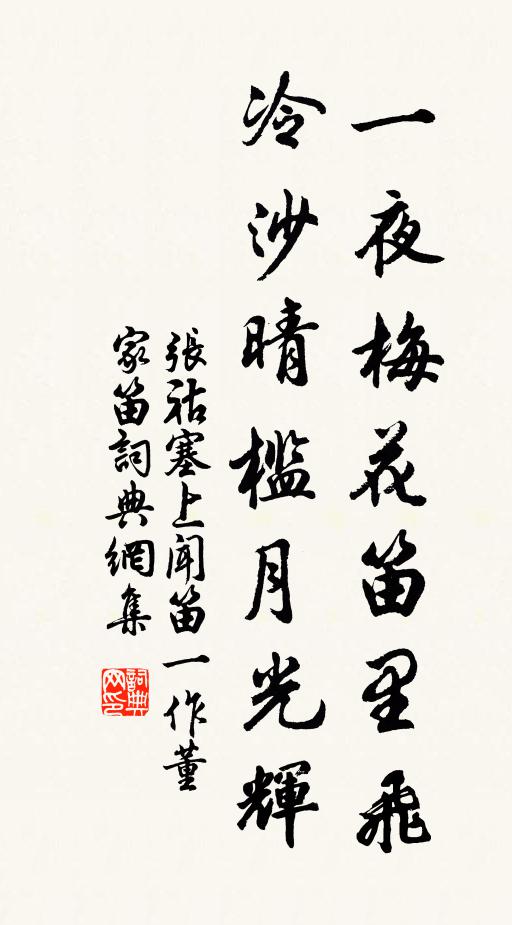 一夜梅花笛里飛
冷沙晴檻月光輝
張祜塞上聞笛一作董
家笛詞典網集
詞典网印